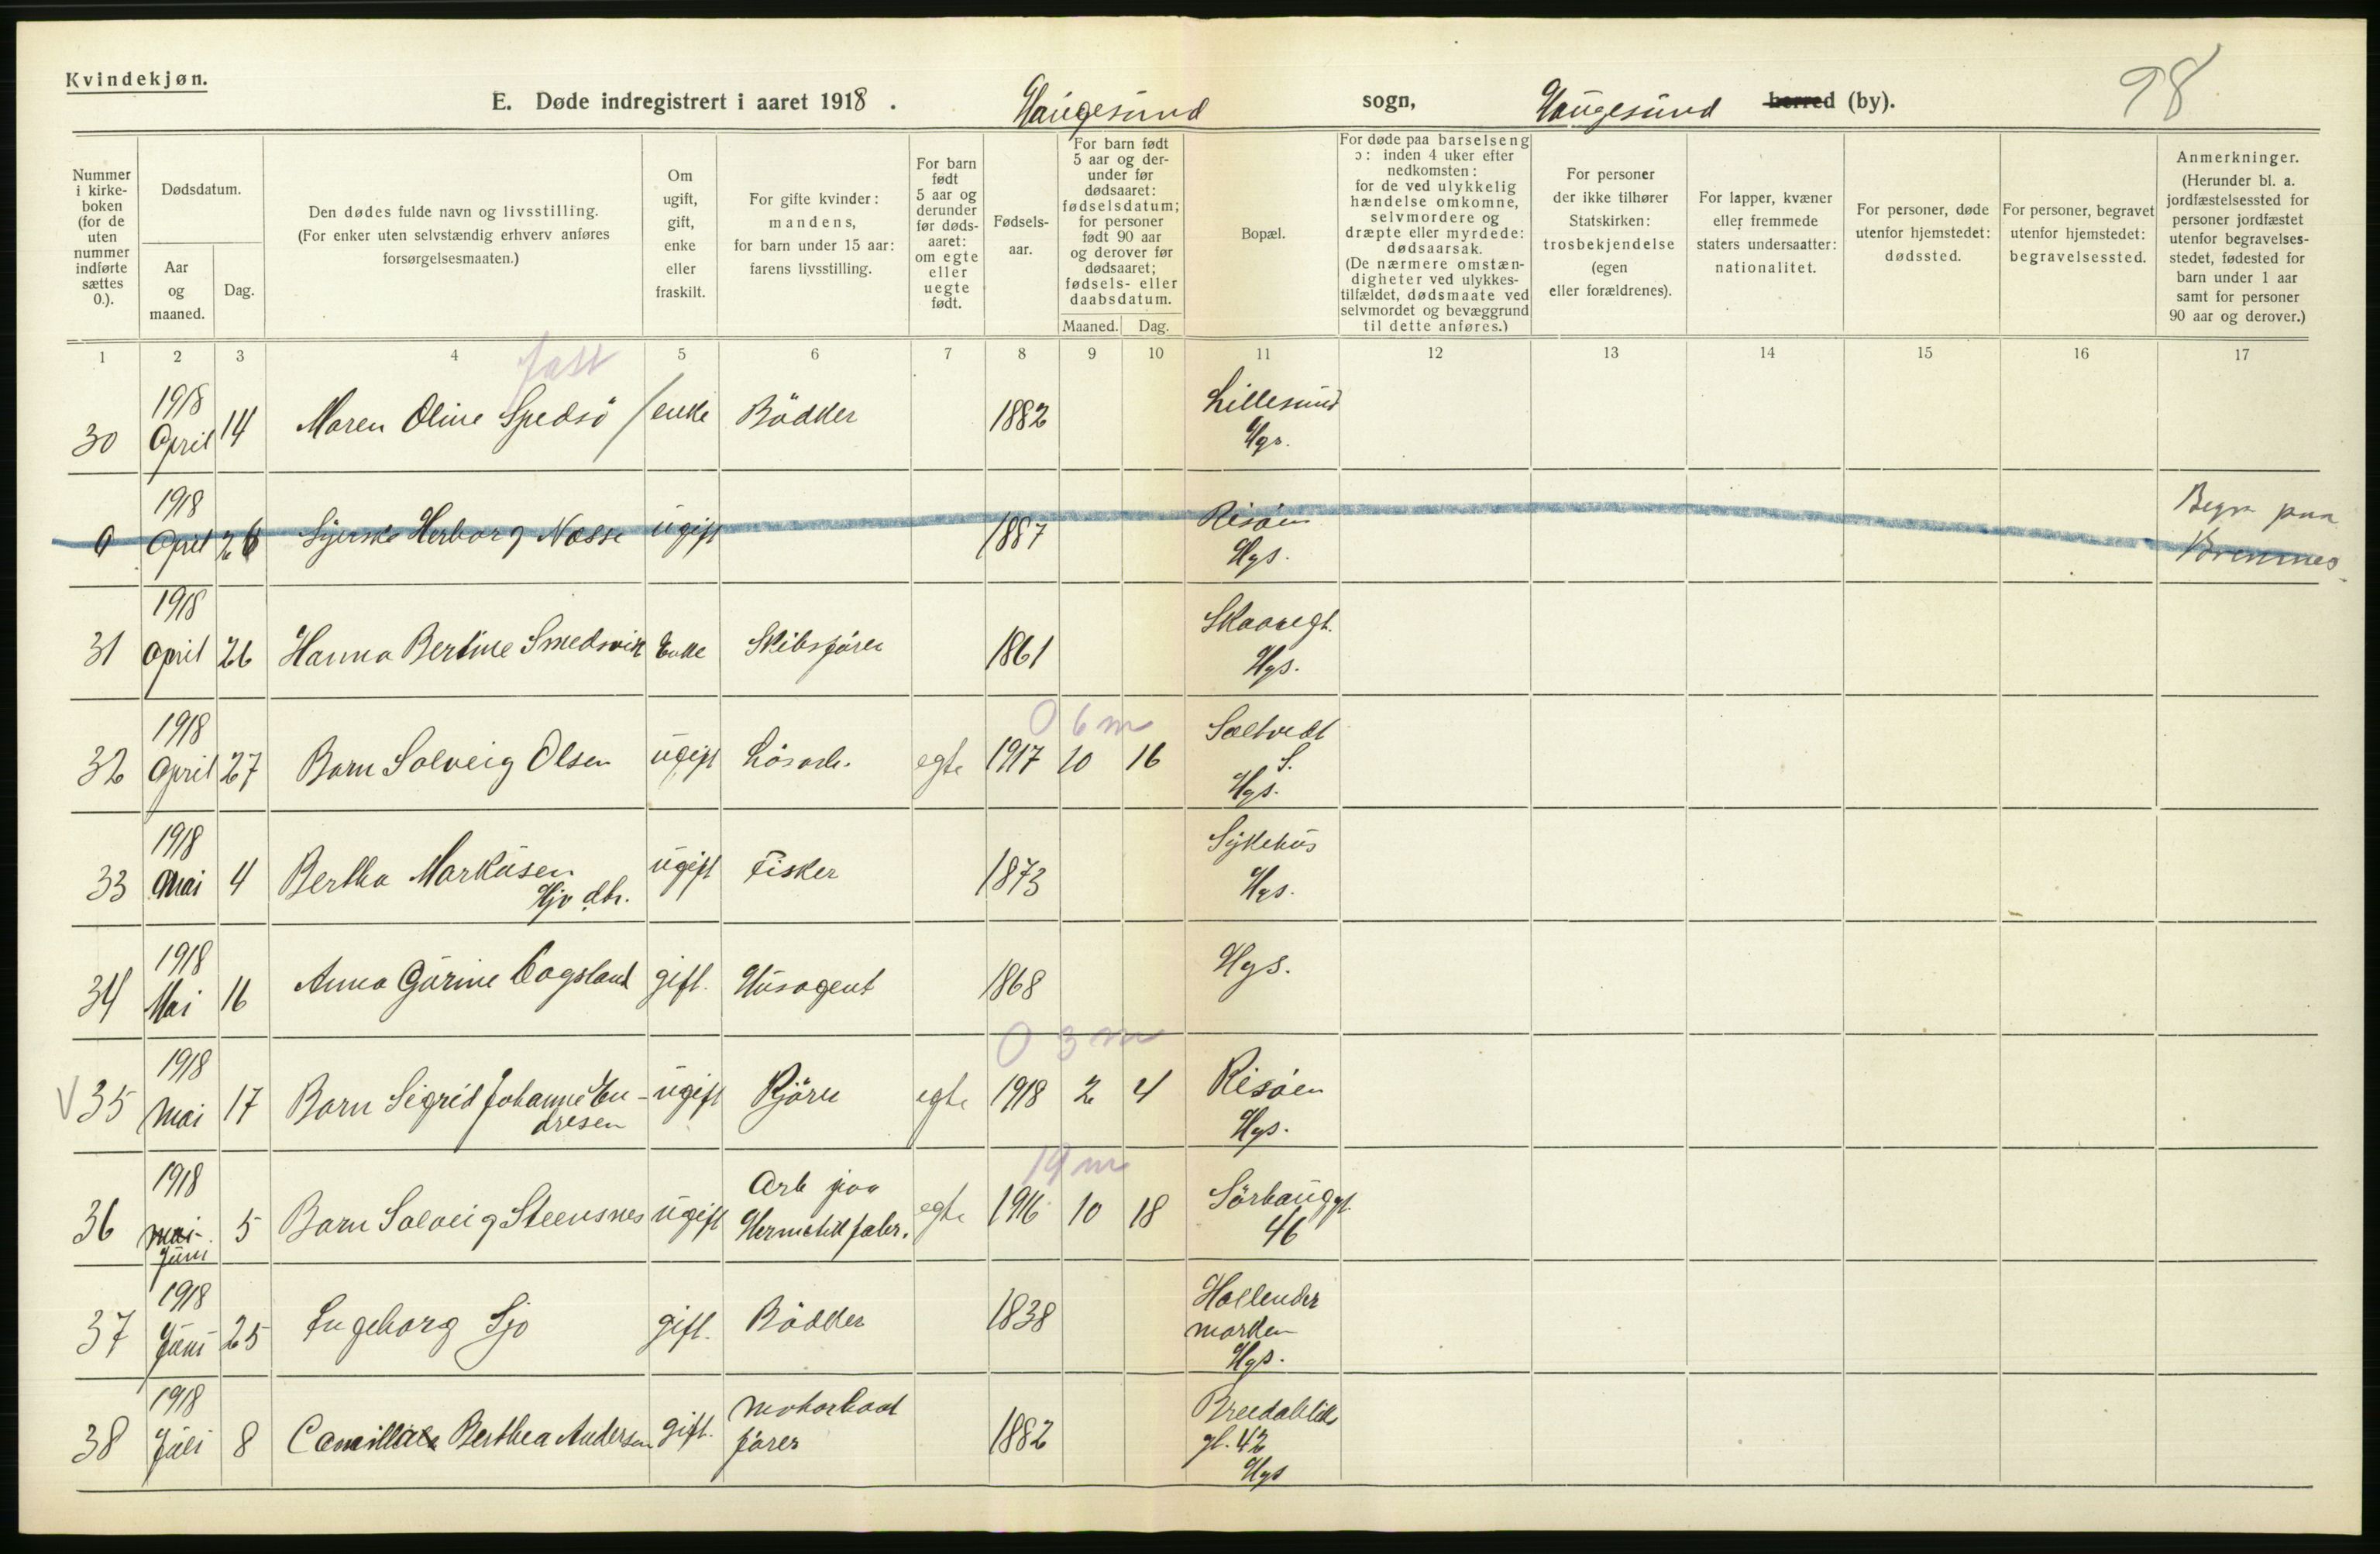 Kvindekjøn.
E. Døde indregistrert i aaret 1918. Haugesund sogn, Haugesund herred (by).
98
Nummer i kirkeboken (for de uten nummer indførte sættes 0.).
Dødsdatum.
Aar og maaned.
Dag.
Den dødes fulde navn og livsstilling.
(For enker uten selvstændig erhverv anføres forsørgelsesmaaten.)
Om ugift, gift, enke eller fraskilt.
For gifte kvinder: mandens, for barn under 15 aar: farens livsstilling.
For barn født 5 aar og derunder før dødsaaret: om egte eller uegte født.
Fødselsaar.
For barn født 5 aar og derunder før dødsaaret: fødselsdatum; for personer født 90 aar og derover før dødsaaret; fødsels- eller daabsdatum.
Maaned.
Dag.
Bopæl.
For døde paa barselseng ɔ: inden 4 uker efter nedkomsten: for de ved ulykkelig hændelse omkomne, selvmordere og dræpte eller myrdede: dødsaarsak.
(De nærmere omstændigheter ved ulykkestilfældet, dødsmaate ved selvmordet og bevæggrund til dette anføres.)
For personer der ikke tilhører Statskirken: trosbekjendelse (egen eller forældrenes).
For lapper, kvæner eller fremmede staters undersaatter: nationalitet.
For personer, døde utenfor hjemstedet: dødssted.
For personer, begravet utenfor hjemstedet: begravelsessted.
Anmerkninger.
(Herunder bl. a. jordfæstelsessted for personer jordfæstet utenfor begravelsesstedet, fødested for barn under 1 aar samt for personer 90 aar og derover.)
1 2 3 4 5 6 7 8 9 10 11 12 13 14 15 16 17
30 1918 April 14 Maren Oline Spedsö / enke Bödker 1882 Lillesund Hgs.
0 1918 April 26 Syerske Herborg Nosse ugift 1887 Risöen Hgs. Begr paa Bremnes
31 1918 April 26 Hanna Bertine Smedsvik Enke Skibsförer 1861 Skaaregt. Hgs.
0 6 m
32 1918 April 27 Barn Solveig Olsen ugift Lösarb. egte 1917 10 16 Saltvedt S. Hgs.
33 1918 Mai 4 Bertha Markusen ugift Fisker 1873 Sykehus Hgs.
34 1918 Mai 16 Anna Gurine gift. Husagent 1868 Hgs.
0 3 m
V 35 1918 Mai 17 Barn Sigrid Johanne Endresen ugift Kjöre egte 1918 2 4 Risöen Hgs.
19 m
36 1918 Mai Juni 5 Barn Solveig Steensnes ugift Arb paa Hermetikfabr. egte 1916 10 18 Sörhauggt 46
37 1918 Juni 25 Ingeborg Sjo gift. Bödker 1838 Hollender marken Hgs.
38 1918 Juli 8 Berthea Andersen gift. Motorbaat förer 1882 Breidablik gt. 42 Hgs